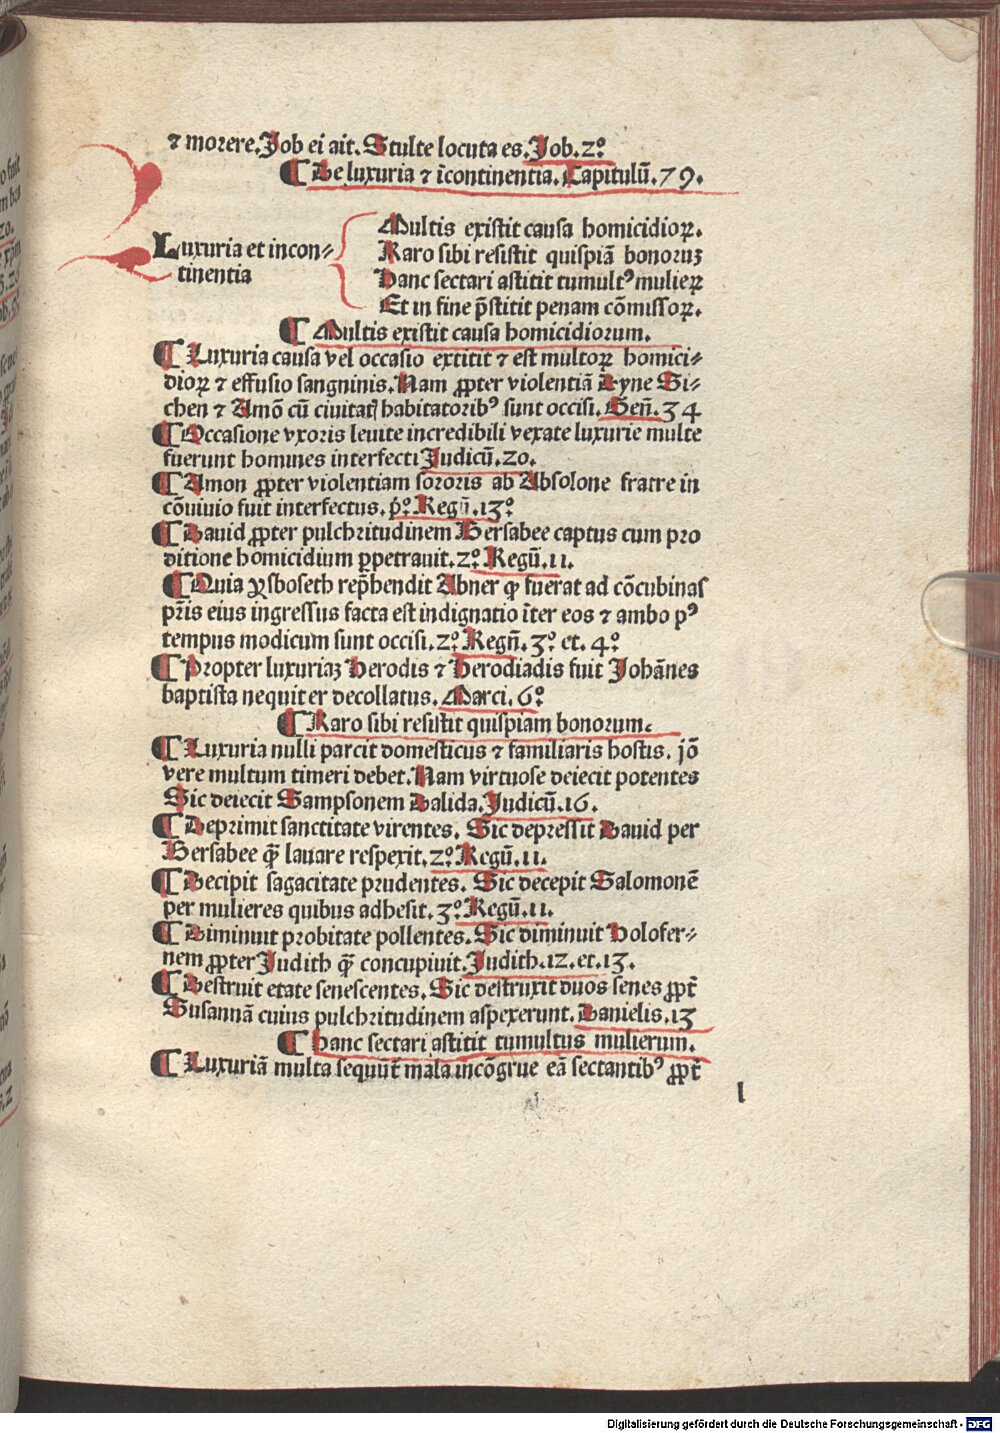 ⁊ morere. Job ei ait. Stulte locuta es. Job. 2°
¶ De luxuria ⁊ ĩcontinentia. Capitulũ. 79.
Luxuria et incon⸗
tinentia
Multis existit causa homicidioꝝ.
Raro sibi resistit quispiã bonoruꝫ
Hanc sectari astitit tumultꝰ mulieꝝ
Et in fine p̃stitit penam cõmissoꝝ.
¶ Multis existit causa homicidiorum.
¶ Luxuria causa vel occasio extitit ⁊ est multoꝝ homici⸗
dioꝝ ⁊ effusio sangninis. Nam ꝓpter violentiã Dyne Si⸗
chen ⁊ Amõ cũ ciuitatꝭ habitatoribꝰ sunt occisi. Geñ. 34
¶ Occasione vxoris leuite incredibili vexate luxurie multe
fuerunt homines interfecti Judicũ. 20.
¶ Amon ꝓpter violentiam sororis ab Absolone fratre in
cõuiuio fuit interfectus. p̃° Regũ. 13°
¶ Dauid ꝓpter pulchritudinem Bersabee captus cum pro
ditione homicidium ꝑpetrauit. 2° Regũ. 11.
¶ Quia Ysboseth rep̃hendit Abner ꝙ fuerat ad cõcubinas
pr̃is eius ingressus facta est indignatio ĩter eos ⁊ ambo pꝰ
tempus modicum sunt occisi. 2° Regñ. 3° et. 4°
¶ Propter luxuriaꝫ Herodis ⁊ Herodiadis fuit Johãnes
baptista nequiter decollatus. Marci. 6°
¶ Raro sibi resistit quispiam bonorum.
¶ Luxuria nulli parcit domesticus ⁊ familiaris hostis. jõ
vere multum timeri debet. Nam virtuose deiecit potentes
Sic deiecit Sampsonem Dalida. Judicũ. 16.
¶ Deprimit sanctitate virentes. Sic depressit Dauid per
Bersabee q̃ꝫ lauare respexit. 2° Regũ. 11.
¶ Decipit sagacitate prudentes. Sic decepit Salomonẽ
per mulieres quibus adhesit. 3° Regũ. 11.
¶ Diminuit probitate pollentes. Sic diminuit Holofer⸗
nem ꝓpter Judith q̃ꝫ concupiuit. Judith. 12. et. 13.
¶ Destruit etate senescentes. Sic destruxit duos senes ꝓpt̃
Susannã cuius pulchritudinem aspexerunt. Danielis. 13
¶ Hanc sectari astitit tumultus mulierum.
¶ Luxuriã multa sequũt̃ mala incõgrue eã sectantibꝰ ꝓpt̃
l
Digitalisierung gefördert durch die Deutsche Forschungsgemeinschaft - DFG